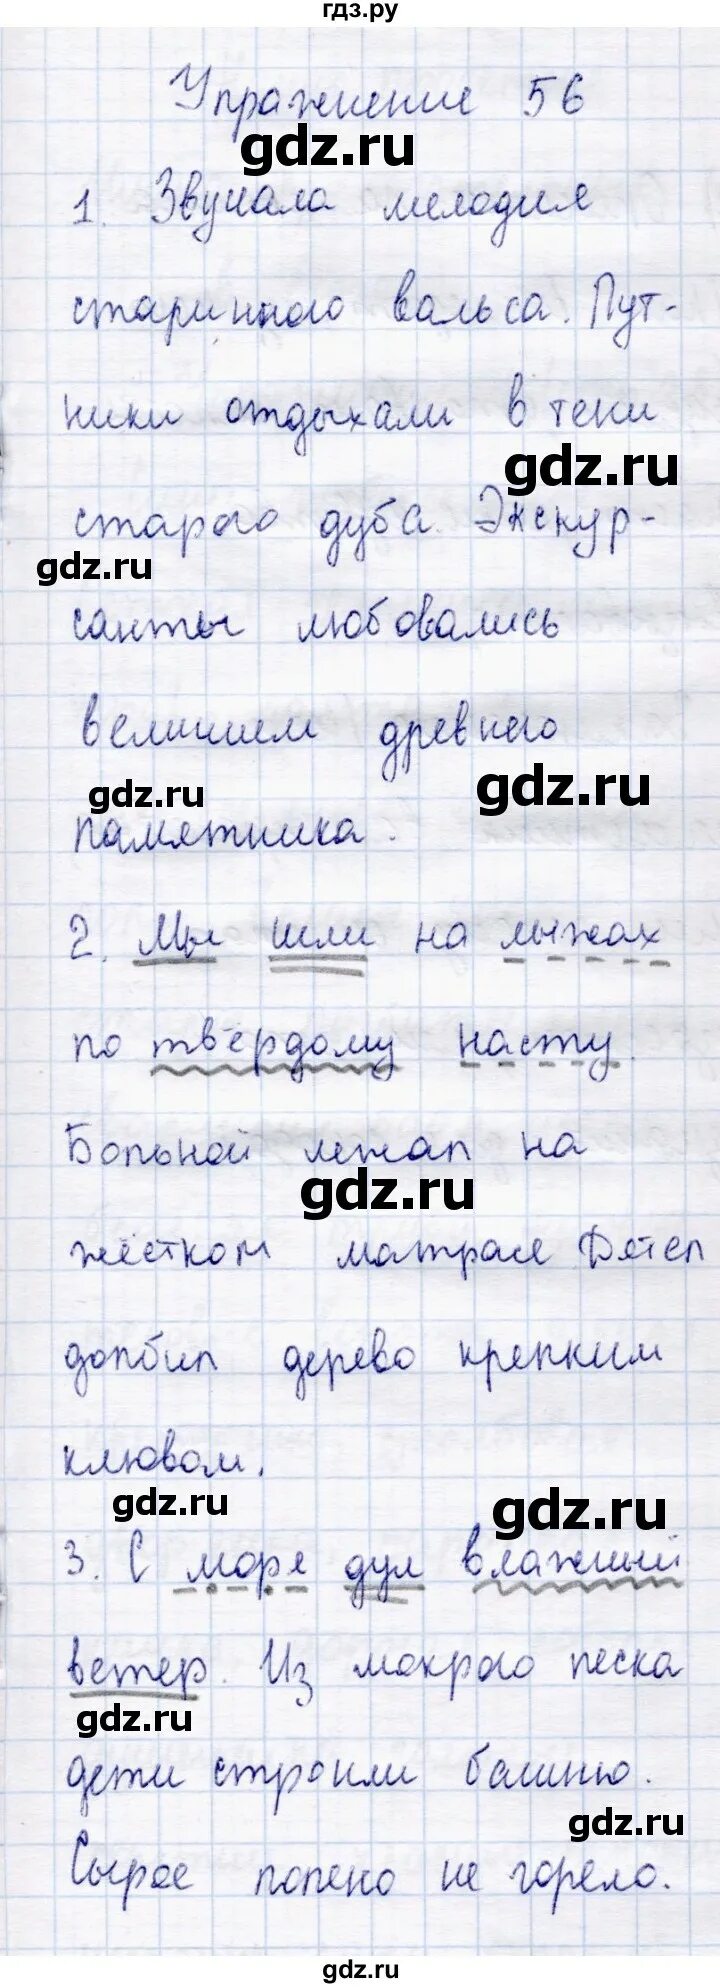 гдз.ру
Упражнение 56
gdz.ru
1. Звучала мелодия
старинного вальса. Пут-
ники отдыхали в тени
gdz.ru
старого дуба. Экскур-
gdz.ru
санты любовались
величием древнего
gdz.ru
gdz.ru
памятника.
2. Мы шли на лыжах
по твёрдому насту.
Больной лежал на
gdz.ru
жёстком матрасе. Дятел
долбил дерево крепким
клювом.
gdz.ru
gdz.ru
3. С моря дул влажный
ветер. Из мокрого песка
gdz.ru
дети строили башню.
gdz.ru
Сырое полено не горело.
gdz.ru